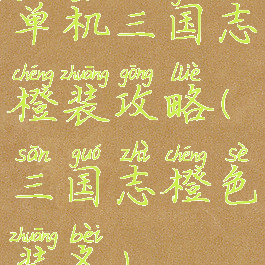 单机三国志
chéng zhuāng gōng lüè
橙装攻略(
sān guó zhì chéng sè
三国志橙色
zhuāng bèi
装备)